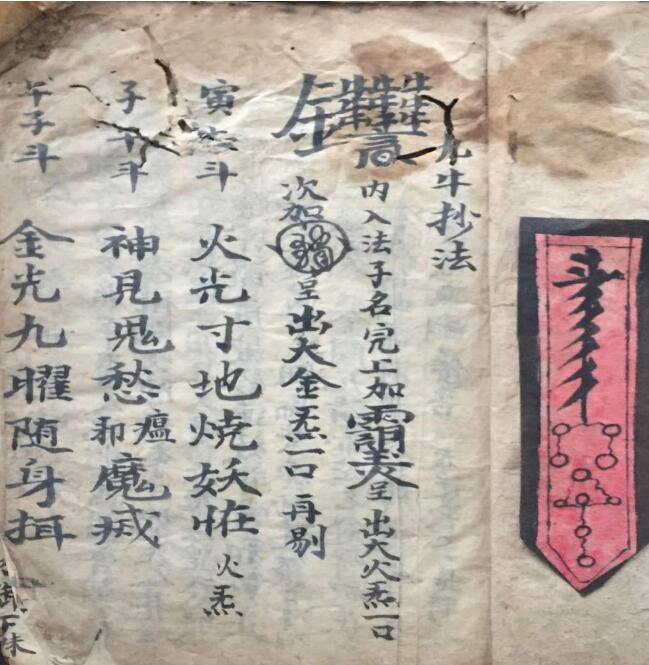 九牛抄法
内入法子名完上加
呈出大火炁一口
次加
呈出大金炁一口再剔
寅 斗
火光寸地燒妖怪火炁
子午斗
神見鬼愁和瘟魔滅
午子斗
金光九曜随身揖